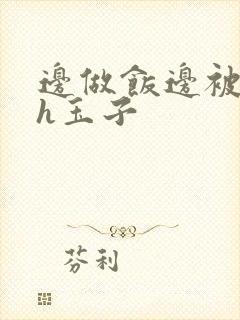 邊做飯邊被
h玉子
芬利